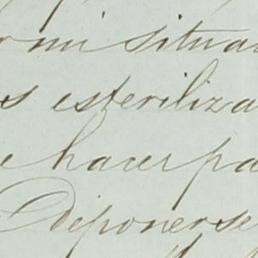 mi situa
s esteriliza
e hacer pa
deponerse